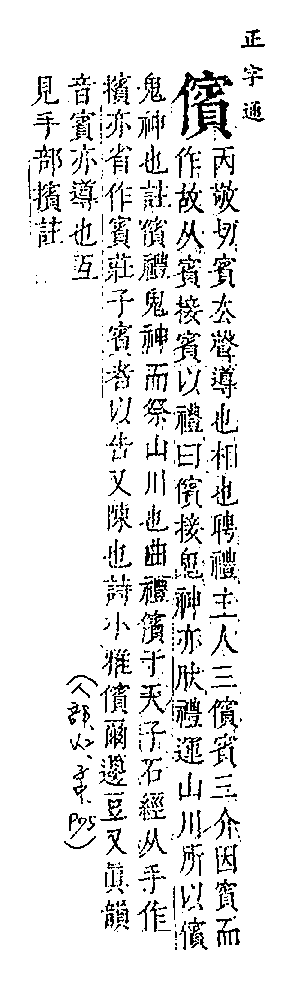 正字通
儐
丙敬切賓去聲導也相也聘禮主人三儐賓三介因賓而
作故从賓接賓以禮曰儐接鬼神亦肰禮運山川所以儐
鬼神也註儐禮鬼神而祭山川也曲禮儐于天子石經从手作
擯亦省作賓莊子賓者以告又陳也詩小雅儐爾籩豆又眞韻
音賓亦導也互
見手部擯註